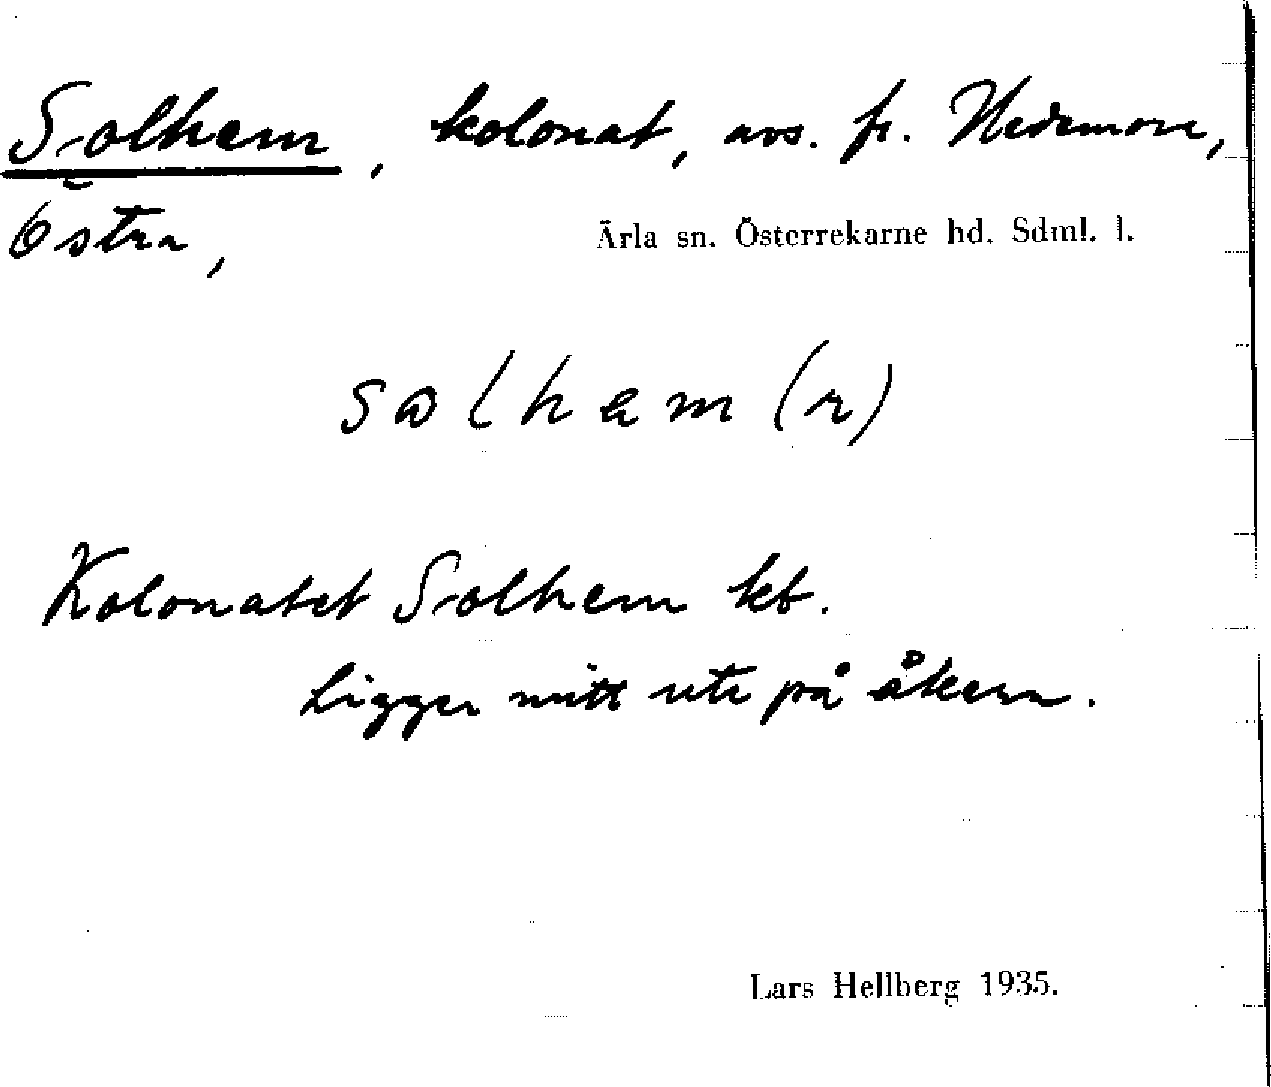 Solhem, kolonat, avs. fr. Hedemore,
Östra,
Ärla sn. Österrekarne hd. Sdml. l.
solhem (r)
Kolonatet Solhem kb.
Ligger mitt ute på åkern.
Lars Hellberg 1935.